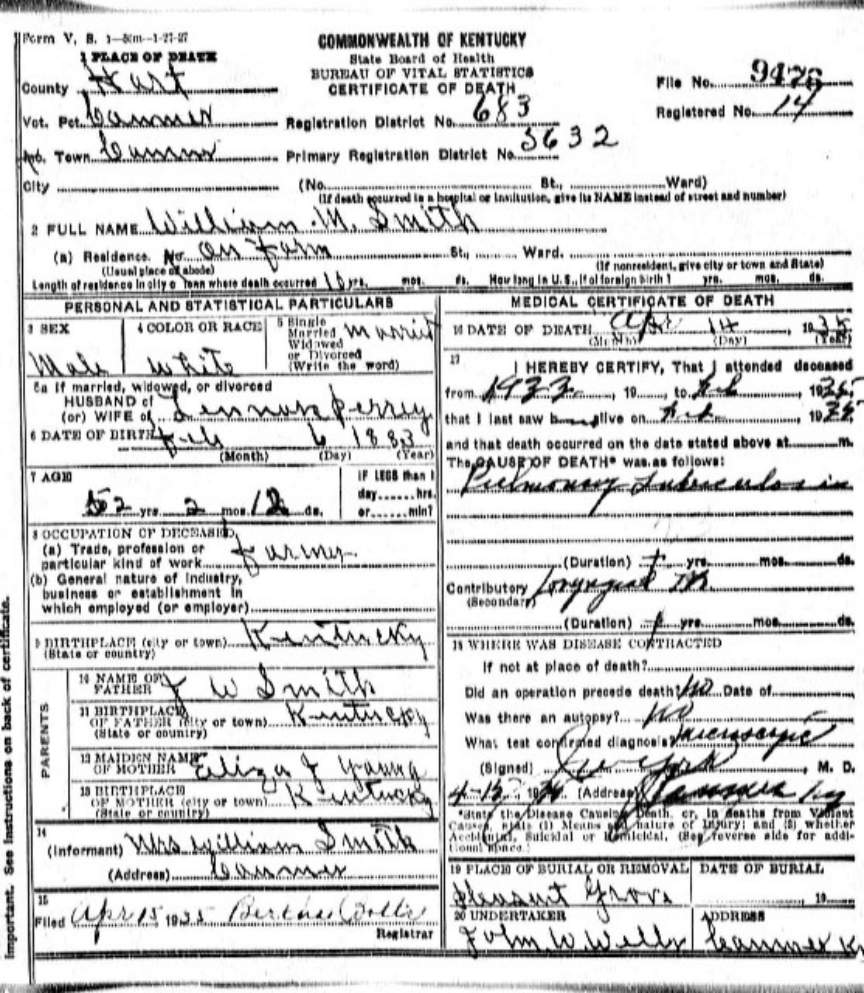 Form V. S. 1-5m-1-27-27
COMMONWEALTH OF KENTUCKY
State Board of Health
BUREAU OF VITAL STATISTICS
CERTIFICATE OF DEATH
1 PLACE OF DEATH
County Hart
Vot. Pct. Canmer
Town Canmer
City
File No. 9476
Registered No. 14
Registration District No. 683
Primary Registration District No. 5632
(No. St., Ward)
(If death occurred in a hospital or institution, give its NAME instead of street and number)
2 FULL NAME William M. Smith
(a) Residence. No. On Farm St., Ward.
(Usual place of abode) (If nonresident, give city or town and State)
Length of residence in city or town where death occurred yrs. mos. ds. How long in U. S., if of foreign birth? yrs. mos. ds.
PERSONAL AND STATISTICAL PARTICULARS
3 SEX
Male
4 COLOR OR RACE
White
5 Single
Married
Widowed
or Divorced
(Write the word)
Married
5a If married, widowed, or divorced
HUSBAND of
(or) WIFE of Perry
6 DATE OF BIRTH Feb 6 1883
(Month) (Day) (Year)
7 AGE
52 yrs. 2 mos. ds.
IF LESS than 1
day hrs.
or min?
8 OCCUPATION OF DECEASED
(a) Trade, profession or
particular kind of work Farmer
(b) General nature of Industry,
business or establishment in
which employed (or employer)
9 BIRTHPLACE (city or town) Kentucky
(State or country)
PARENTS
10 NAME OF
FATHER J W Smith
11 BIRTHPLACE
OF FATHER (city or town) Kentucky
(State or country)
12 MAIDEN NAME
OF MOTHER Eliza J Young
13 BIRTHPLACE
OF MOTHER (city or town) Kentucky
(State or country)
14
(Informant) Mrs William Smith
(Address) Canmer
15
Filed Apr 15 1935 Bertha
Registrar
MEDICAL CERTIFICATE OF DEATH
16 DATE OF DEATH Apr 14 1935
(Month) (Day) (Year)
17
I HEREBY CERTIFY, That I attended deceased
from 1933, 19, to Feb, 1935
that I last saw h alive on Feb, 1935
and that death occurred on the date stated above at m.
The CAUSE OF DEATH* was as follows:
Pulmonary Tuberculosis
(Duration) yrs. mos. ds.
Contributory Laryngeal TB
(Secondary)
(Duration) yrs. mos. ds.
18 WHERE WAS DISEASE CONTRACTED
If not at place of death?
Did an operation precede death? No Date of
Was there an autopsy? No
What test confirmed diagnosis? Microscopic
(Signed) , M. D.
(Address) Canmer Ky
*State the Disease Causing Death, or, in deaths from Violent
Causes, state (1) Means and nature of Injury; and (2) whether
Accidental, Suicidal or Homicidal. (See reverse side for addi-
tional space.)
19 PLACE OF BURIAL OR REMOVAL
Pleasant Grove
DATE OF BURIAL
19
20 UNDERTAKER
John W. Wells
ADDRESS
Canmer Ky
Important. See Instructions on back of certificate.